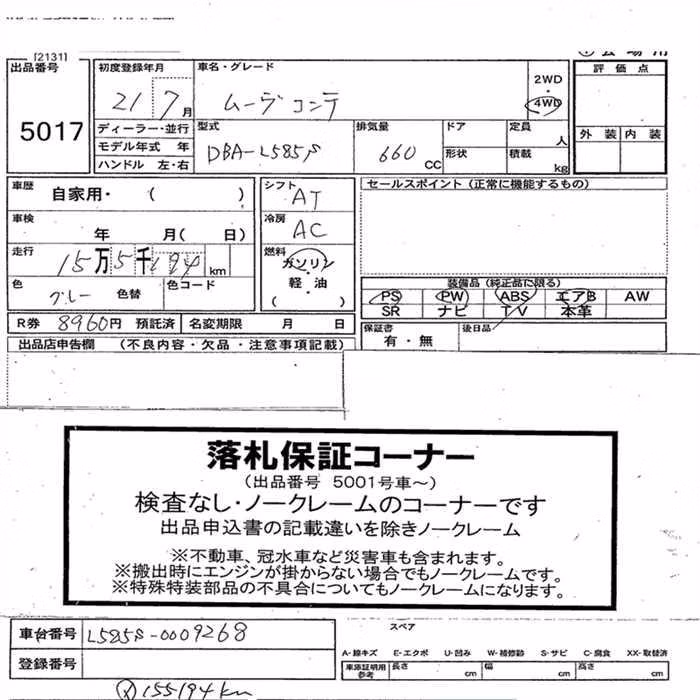 [2131]
出品番号 5017
初度登録年月 21 7月
車名・グレード ムーヴコンテ
2WD・4WD
評価点
外装 内装
ディーラー・並行
モデル年式 年
ハンドル 左・右
型式 DBA-L585S
排気量 660 CC
ドア
形状
定員 人
積載 kg
車歴 自家用・( )
車検 年 月( 日)
走行 15万5千194 km
色 グレー 色替
色コード
シフト AT
冷房 AC
燃料 ガソリン
軽・油
( )
セールスポイント(正常に機能するもの)
装備品(純正品に限る)
PS PW ABS エアB AW
SR ナビ TV 本革
R券 8960円 預託済 名変期限 月 日
保証書 有・無
後日品
出品店申告欄 (不良内容・欠品・注意事項記載)
落札保証コーナー
(出品番号 5001号車~)
検査なし・ノークレームのコーナーです
出品申込書の記載違いを除きノークレーム
※不動車、冠水車など災害車も含まれます。
※搬出時にエンジンが掛からない場合でもノークレームです。
※特殊特装部品の不具合についてもノークレームになります。
車台番号 L585S-0009268
登録番号
スペア
A-線キズ E-エクボ U-凹み W-補修跡 S-サビ C-腐食 XX-取替済
車庫証明用参考 長さ cm 幅 cm 高さ cm
155194km